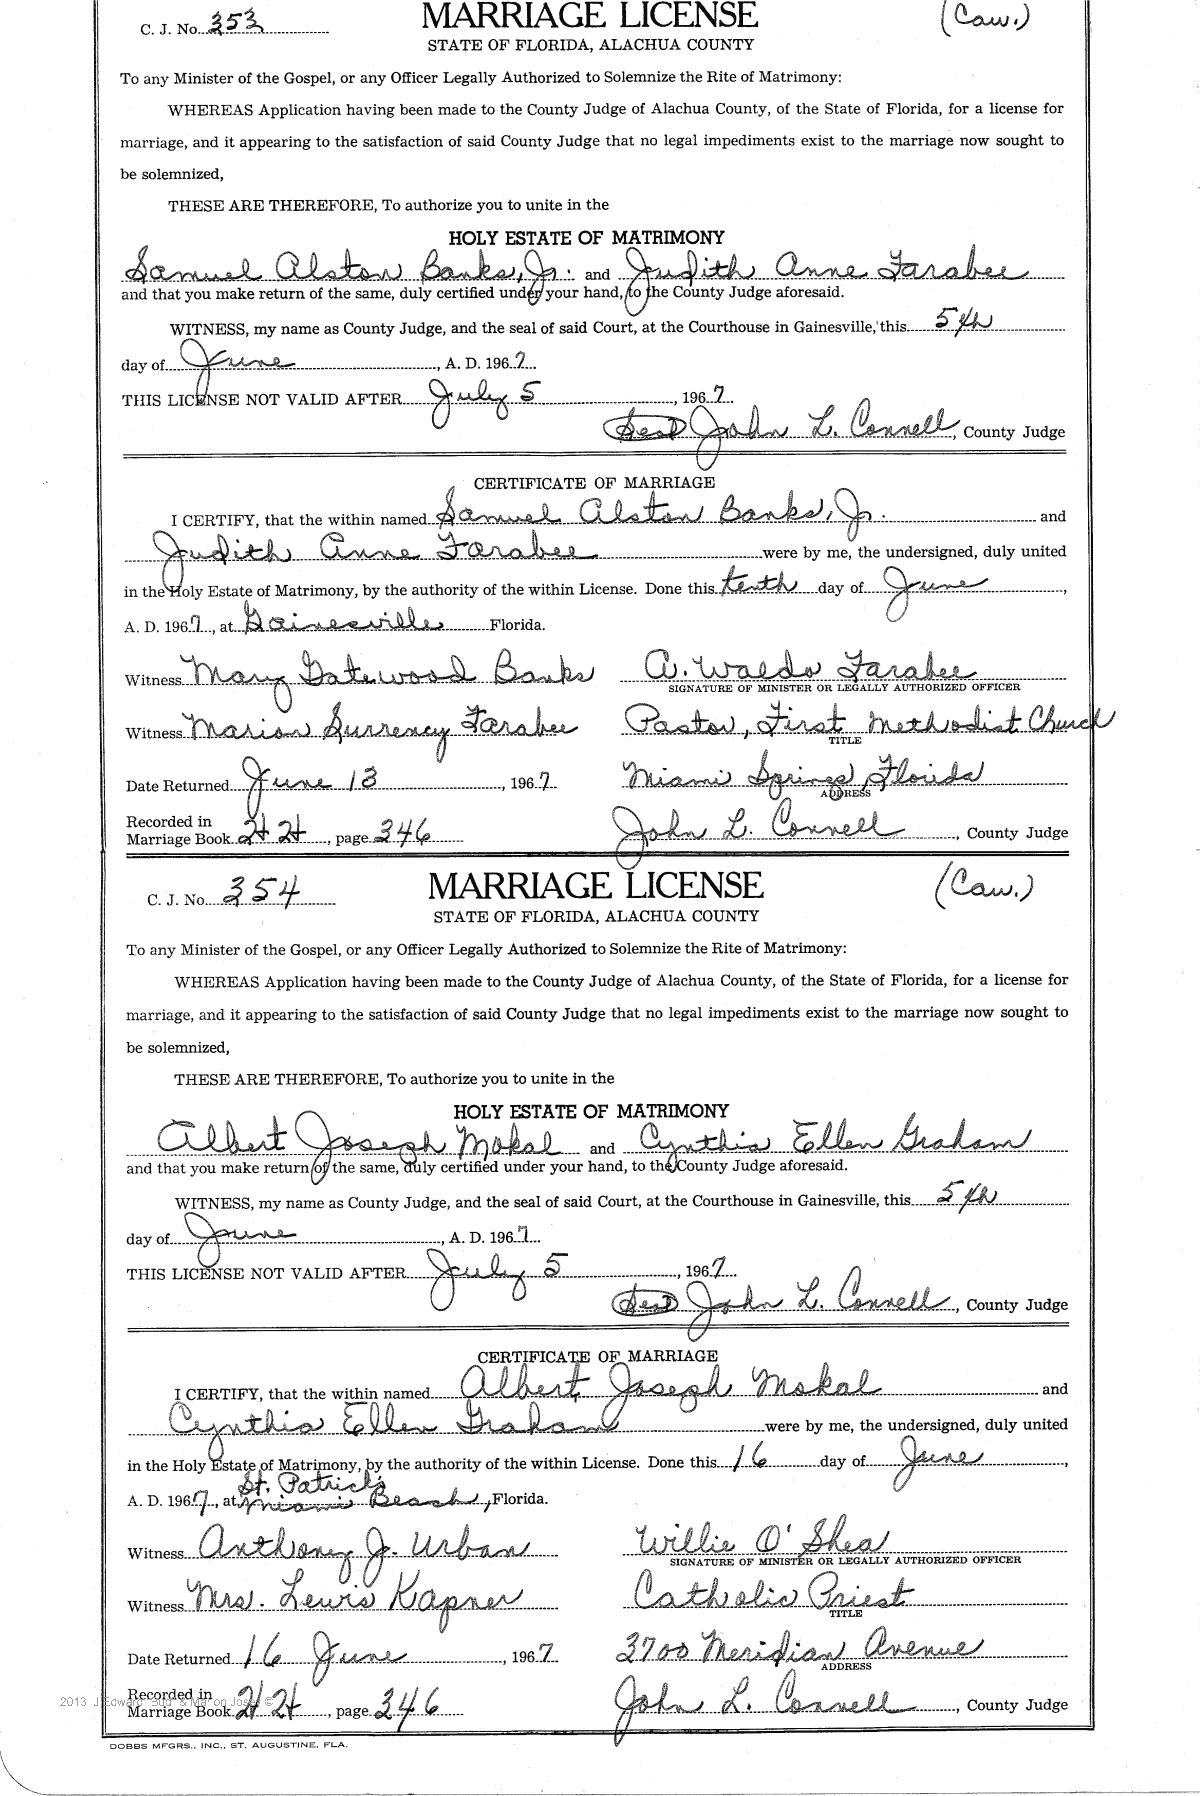 C. J. No. 353 MARRIAGE LICENSE (Caw.)
STATE OF FLORIDA, ALACHUA COUNTY
To any Minister of the Gospel, or any Officer Legally Authorized to Solemnize the Rite of Matrimony:
WHEREAS Application having been made to the County Judge of Alachua County, of the State of Florida, for a license for
marriage, and it appearing to the satisfaction of said County Judge that no legal impediments exist to the marriage now sought to
be solemnized,
THESE ARE THEREFORE, To authorize you to unite in the
HOLY ESTATE OF MATRIMONY
Samuel Alston Banks, Jr. and Judith Anne Farabee
and that you make return of the same, duly certified under your hand, to the County Judge aforesaid.
WITNESS, my name as County Judge, and the seal of said Court, at the Courthouse in Gainesville, this 5th
day of June, A. D. 1967
THIS LICENSE NOT VALID AFTER July 5, 1967
(Seal) John L. Connell, County Judge
CERTIFICATE OF MARRIAGE
I CERTIFY, that the within named Samuel Alston Banks, Jr. and
Judith Anne Farabee were by me, the undersigned, duly united
in the Holy Estate of Matrimony, by the authority of the within License. Done this tenth day of June,
A. D. 1967, at Gainesville Florida.
Witness Mary Gatewood Banks A. Waldo Farabee
SIGNATURE OF MINISTER OR LEGALLY AUTHORIZED OFFICER
Witness Marion Surrency Farabee Pastor, First Methodist Church
TITLE
Date Returned June 13, 1967 Miami Springs, Florida
ADDRESS
Recorded in
Marriage Book 24, page 346 John L. Connell, County Judge
C. J. No. 354 MARRIAGE LICENSE (Caw.)
STATE OF FLORIDA, ALACHUA COUNTY
To any Minister of the Gospel, or any Officer Legally Authorized to Solemnize the Rite of Matrimony:
WHEREAS Application having been made to the County Judge of Alachua County, of the State of Florida, for a license for
marriage, and it appearing to the satisfaction of said County Judge that no legal impediments exist to the marriage now sought to
be solemnized,
THESE ARE THEREFORE, To authorize you to unite in the
HOLY ESTATE OF MATRIMONY
Albert Joseph Mokal and Cynthia Ellen Graham
and that you make return of the same, duly certified under your hand, to the County Judge aforesaid.
WITNESS, my name as County Judge, and the seal of said Court, at the Courthouse in Gainesville, this 5th
day of June, A. D. 1967
THIS LICENSE NOT VALID AFTER July 5, 1967
(Seal) John L. Connell, County Judge
CERTIFICATE OF MARRIAGE
I CERTIFY, that the within named Albert Joseph Mokal and
Cynthia Ellen Graham were by me, the undersigned, duly united
in the Holy Estate of Matrimony, by the authority of the within License. Done this 16 day of June,
St. Patrick's
A. D. 1967, at Miami Beach, Florida.
Witness Anthony J. Urban Willie O'Shea
SIGNATURE OF MINISTER OR LEGALLY AUTHORIZED OFFICER
Witness Mrs. Lewis Kapner Catholic Priest
TITLE
Date Returned 16 June, 1967 3700 Meridian Avenue
ADDRESS
Recorded in
Marriage Book 24, page 346 John L. Connell, County Judge
2013 J Edward
DOBBS MFGRS., INC., ST. AUGUSTINE, FLA.